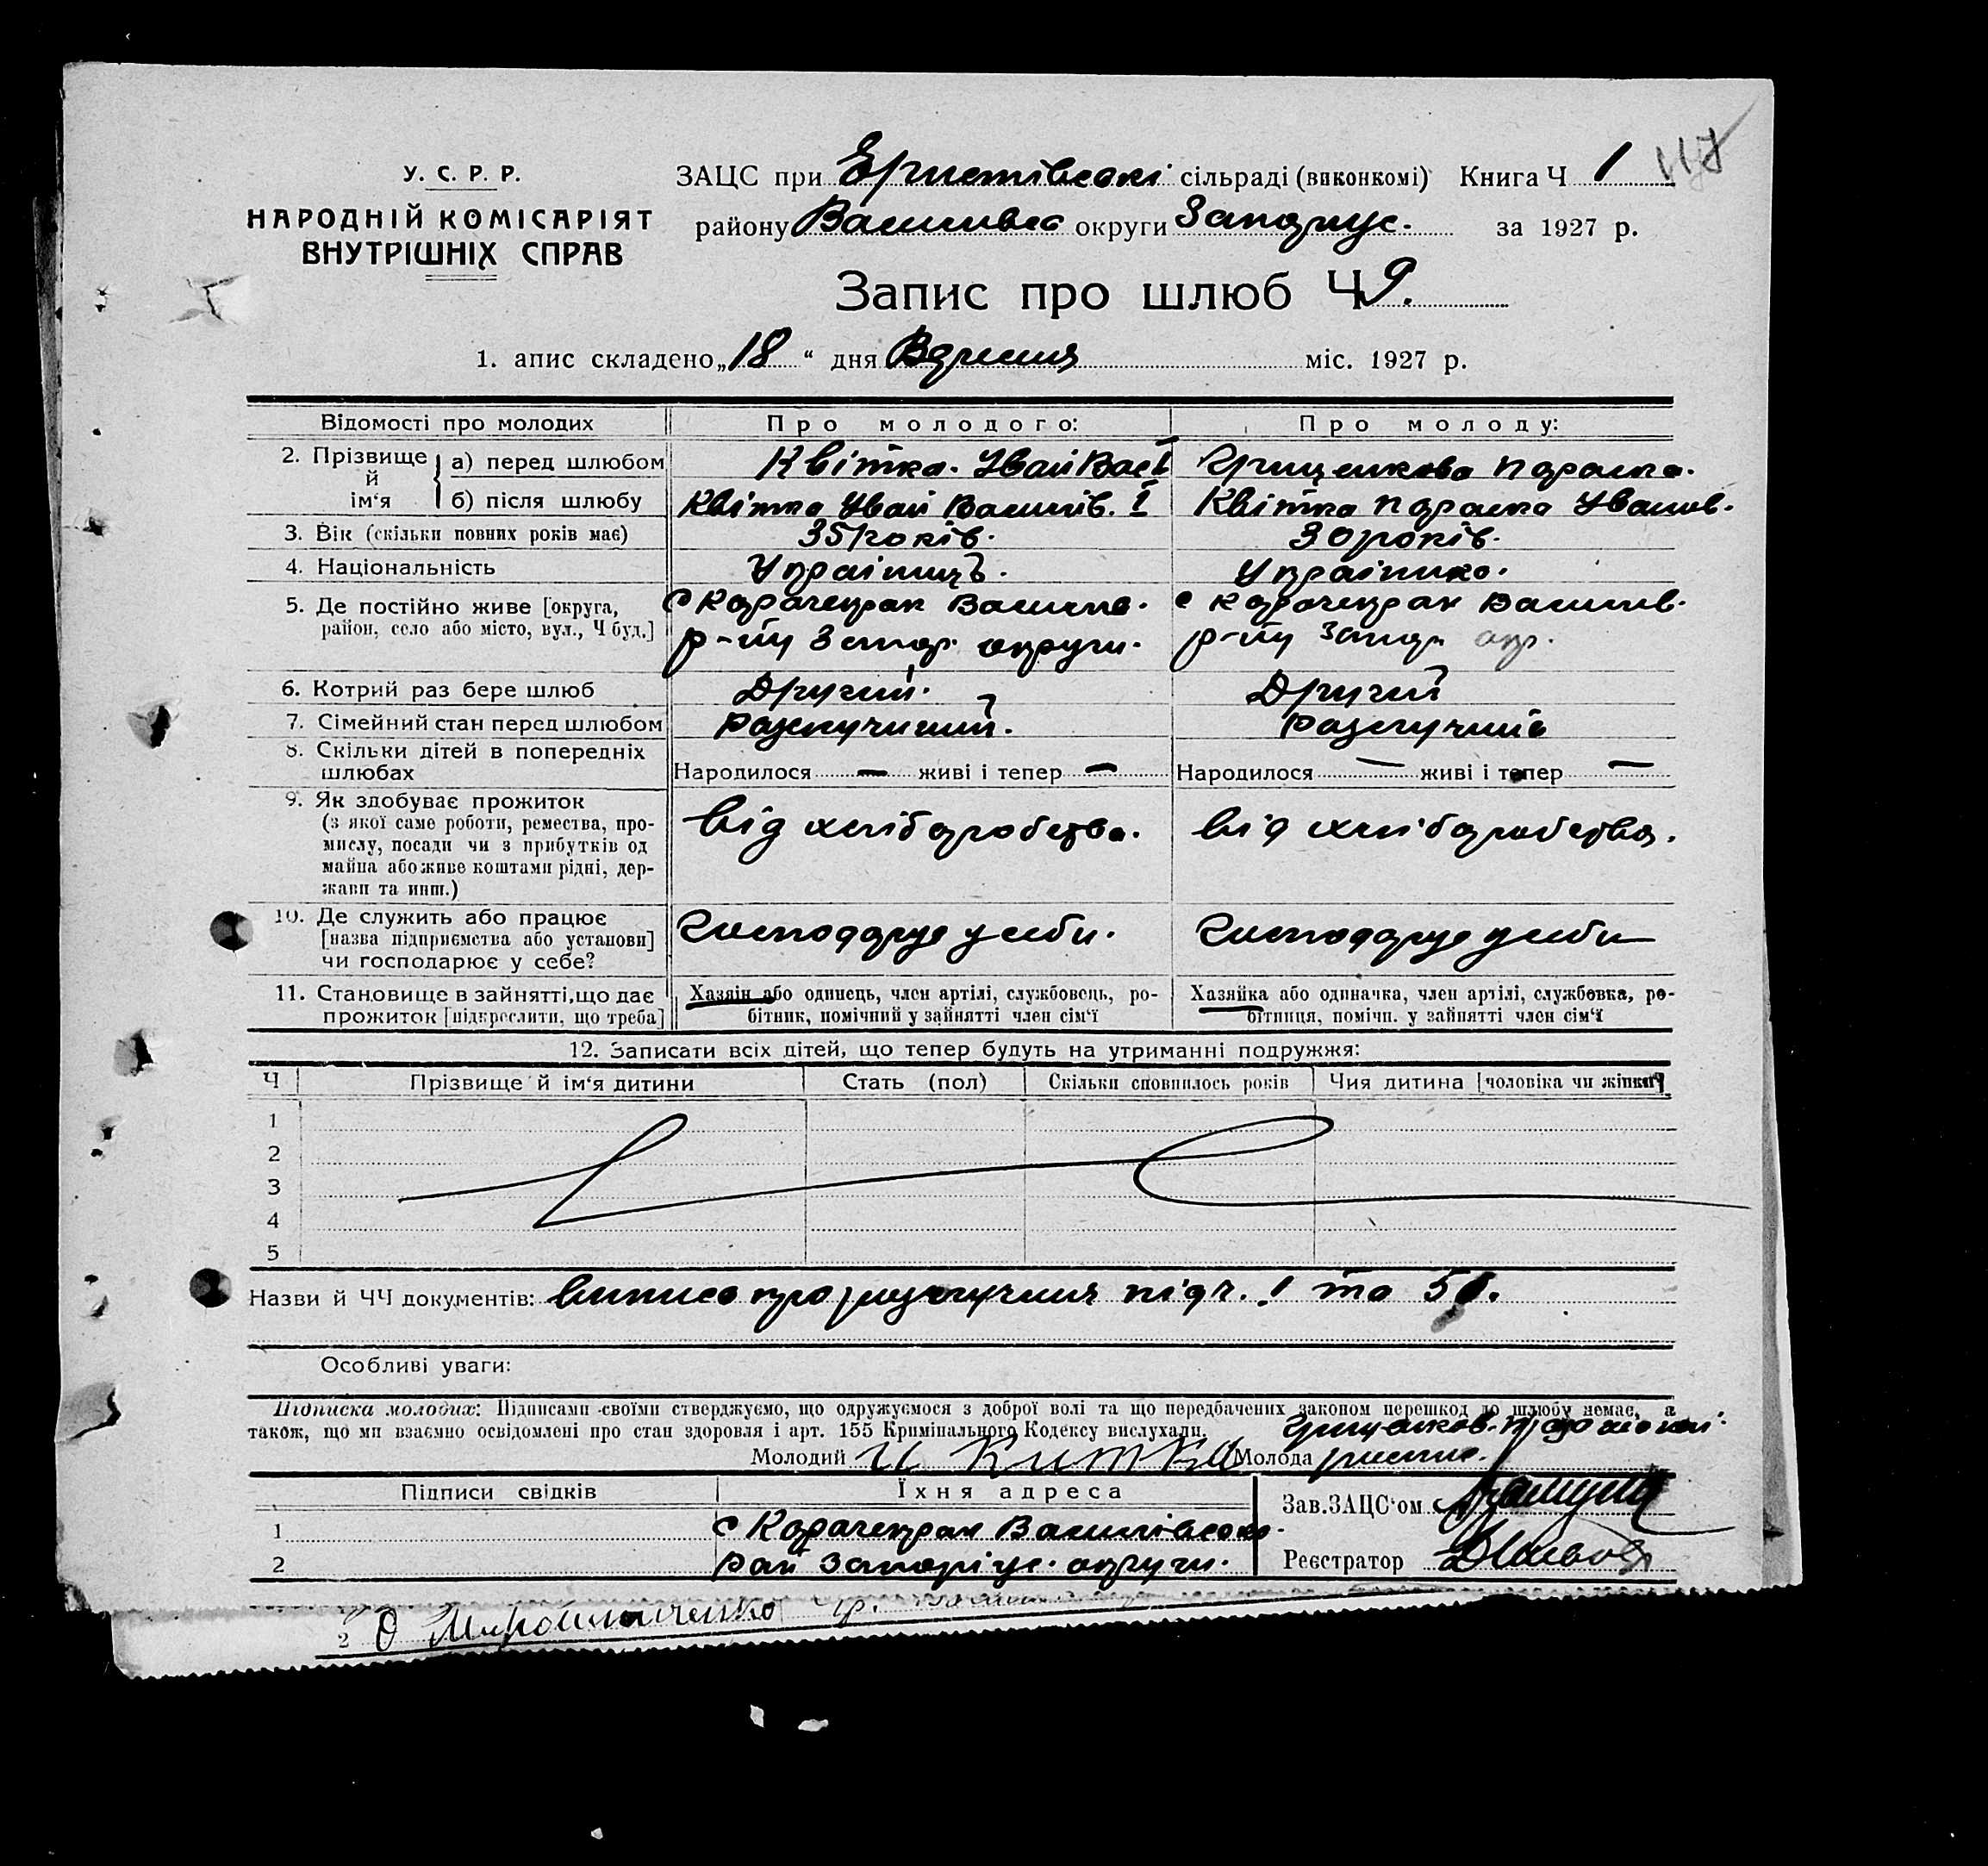 У. С. Р. Р.
НАРОДНІЙ КОМІСАРІЯТ
ВНУТРІШНІХ СПРАВ
ЗАЦС при Еристівські сільраді (виконкомі) Книга Ч 1 117
району Василівсь округи Запоріус. за 1927 р.
Запис про шлюб Ч 9.
1. апис складено „18“ дня Вересня міс. 1927 р.
Відомості про молодих
Про молодого:
Про молоду:
2. Прізвище й ім‘я
а) перед шлюбом
Квітка. Иван Васі
Грищенкова Параска.
б) після шлюбу
Квітка Иван Василів. І
Квітка Параска Иванов.
3. Вік (скільки повних років має)
35 років.
30 років.
4. Національність
Українць.
Українка.
5. Де постійно живе [округа,
район, село або місто, вул., Ч буд.]
с Карачекрак Василів.
р-ну Запор. округи.
с Карачекрак Василів.
р-ну Запор. окр.
6. Котрий раз бере шлюб
Другий.
Другий
7. Сімейний стан перед шлюбом
8. Скільки дітей в попередніх
шлюбах
Народилося — живі і тепер —
Народилося — живі і тепер —
9. Як здобуває прожиток
(з якої саме роботи, ремества, про-
мислу, посади чи з прибутків од
майна або живе коштами рідні, дер-
жави та инш.)
від хліборобства.
від хліборобства.
10. Де служить або працює
[назва підприємства або установи]
чи господарює у себе?
господарує у себи.
господарує у себи
11. Становище в зайнятті, що дає
прожиток [підкреслити, що треба]
Хазяін або одинець, член артілі, службовець, ро-
бітник, помічний у зайнятті член сім‘ї
Хазяйка або одиначка, член артілі, службовка, ро-
бітниця, помічн. у зайнятті член сім‘ї
12. Записати всіх дітей, що тепер будуть на утриманні подружжя:
Ч Прізвище й ім‘я дитини Стать (пол) Скільки сповнилось років Чия дитина [чоловіка чи жінки?]
1
2
3
4
5
Назви й ЧЧ документів: виписа про разлучния під ч. 1 та 51.
Особливі уваги:
Підписка молодих: Підписами своїми стверджуємо, що одружуємося з доброї волі та що передбачених законом перешкод до шлюбу немає, а
також, що ми взаємно освідомлені про стан здоровля і арт. 155 Кримінального Кодексу вислухали.
Молодий И Китка Молода Грищенков.
Підписи свідків
Їхня адреса
1 с Карачекрак Василівсько
2 рай Запоріус. округи.
Зав. ЗАЦС‘ом
Реєстратор
2 О Мирошниченко гр.